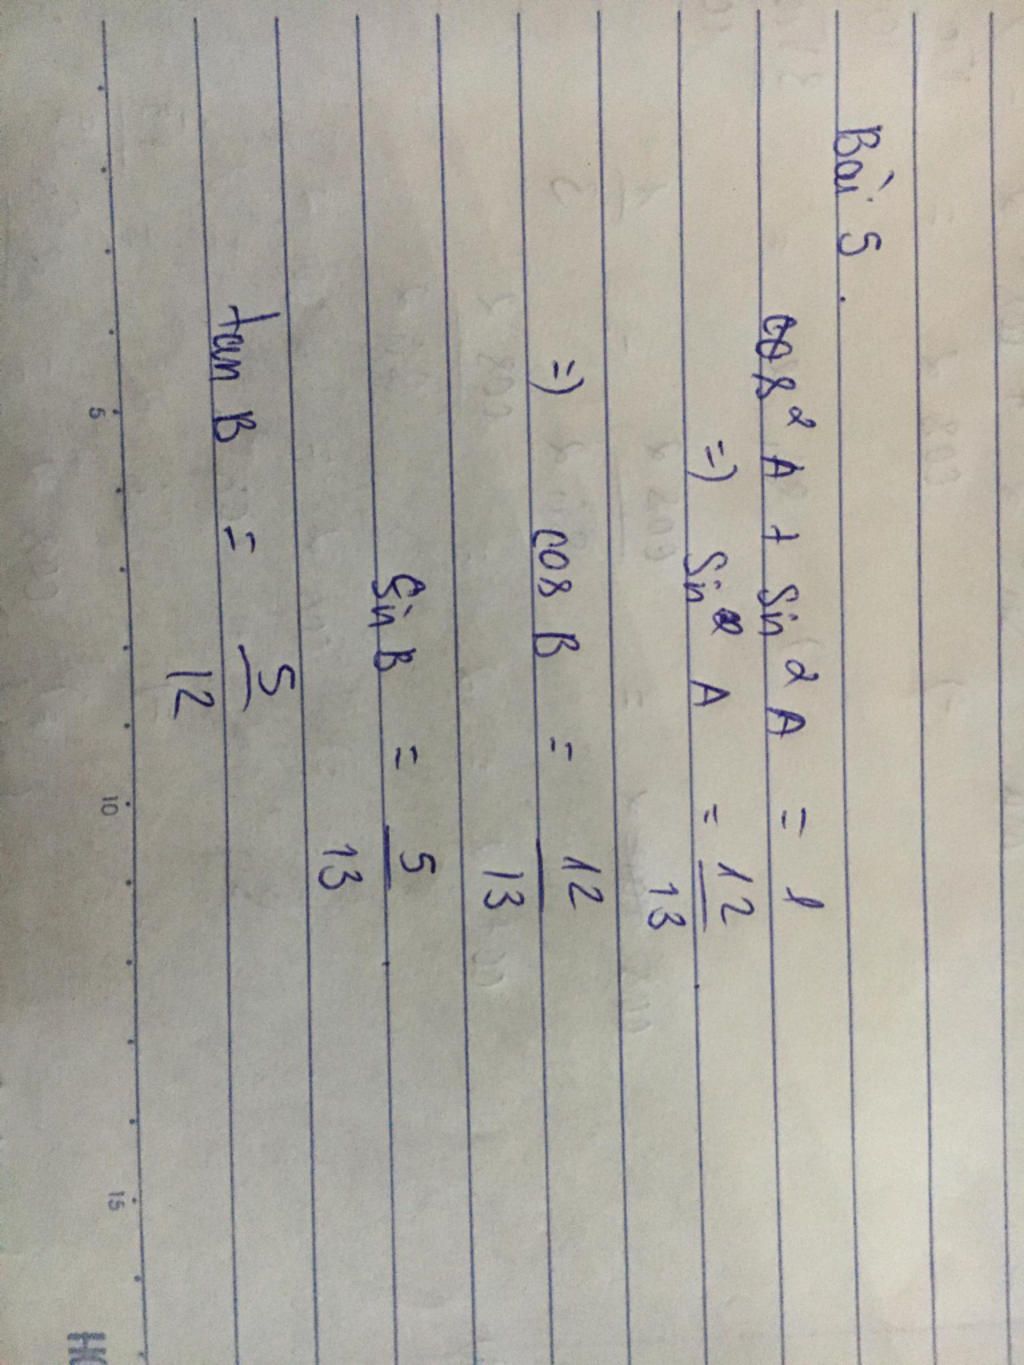 Bài 5.
cos² A + Sin² A = 1
=) Sin A = 12/13
=) cos B = 12/13
Sin B = 5/13
tan B = 5/12
5 10 15